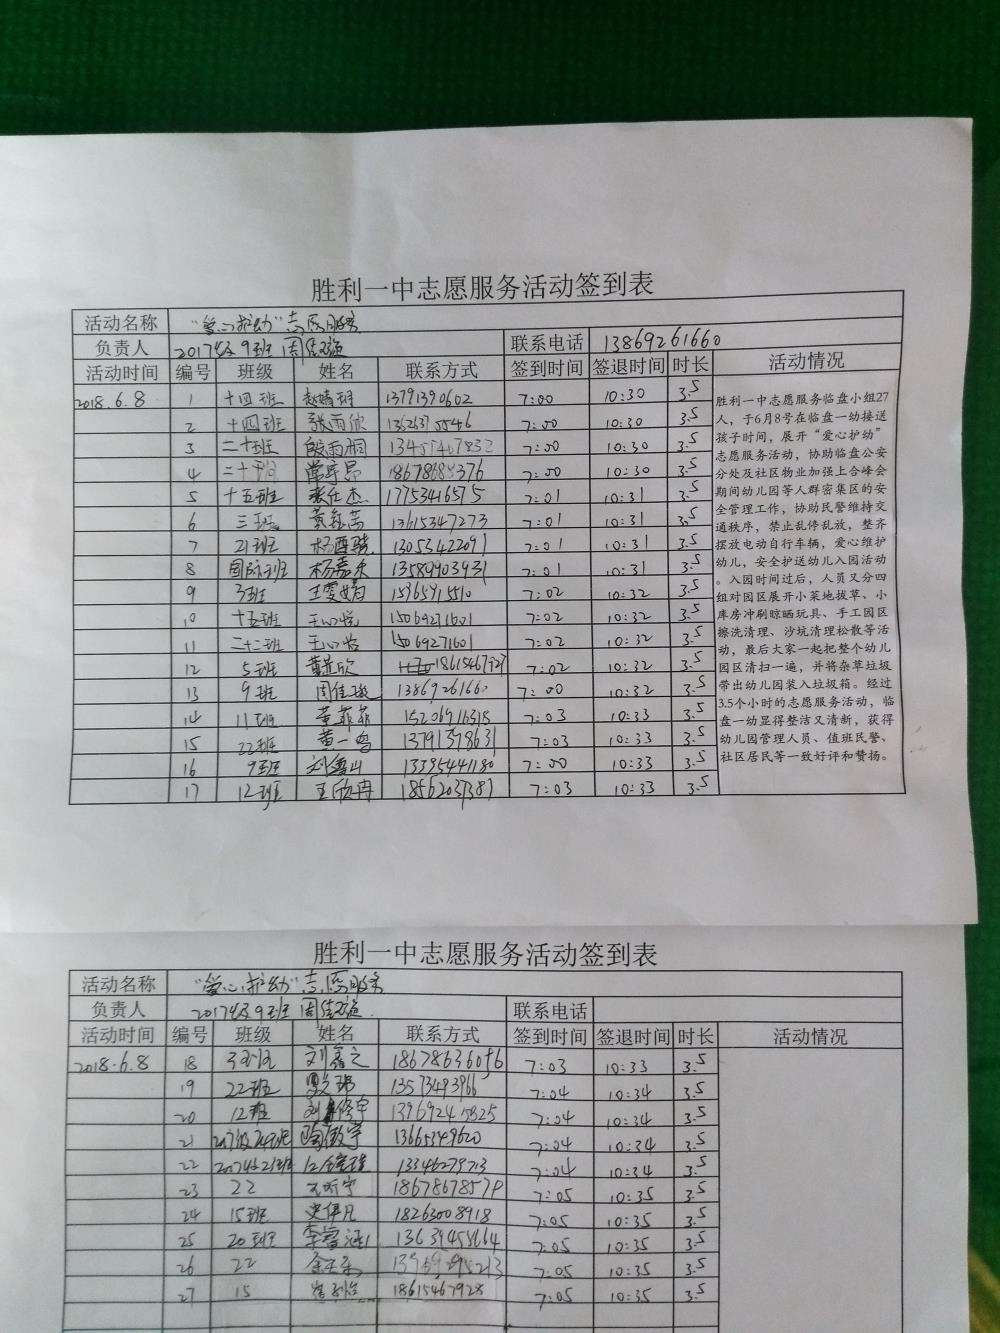 胜利一中志愿服务活动签到表
活动名称 "爱心护幼"志愿服务
负责人 2017级9班 周佳璇 联系电话 13869261660
活动时间 编号 班级 姓名 联系方式 签到时间 签退时间 时长 活动情况
2018.6.8 1 十四班 13791390602 7:00 10:30 3.5
2 十四班 张雨欣 7:00 10:30 3.5
3 二十班 殷雨桐 7:00 10:30 3.5
4 7:00 10:30 3.5
5 十五班 张仕杰 17753416575 7:01 10:31 3.5
6 三班 13615347273 7:01 10:31 3.5
7 21班 13053422091 7:01 10:31 3.5
8 国际班 杨嘉禾 13589903931 7:01 10:31 3.5
9 3班 王雯婧 15365715510 7:02 10:32 3.5
10 十五班 王心悦 15069271601 7:02 10:32 3.5
11 二十二班 王心怡 15069271601 7:02 10:32 3.5
12 5班 7:02 10:32 3.5
13 9班 周佳璇 13869261660 7:00 10:32 3.5
14 11班 黄菲菲 15206916315 7:03 10:33 3.5
15 22班 黄一鸣 13791398631 7:03 10:33 3.5
16 9班 13395441180 7:00 10:33 3.5
17 12班 王欣冉 18562037387 7:03 10:33 3.5
胜利一中志愿服务临盘小组27
人，于6月8号在临盘一幼接送
孩子时间，展开“爱心护幼”
志愿服务活动，协助临盘公安
分处及社区物业加强上合峰会
期间幼儿园等人群密集区的安
全管理工作，协助民警维持交
通秩序，禁止乱停乱放，整齐
摆放电动自行车辆，爱心维护
幼儿，安全护送幼儿入园活动
。入园时间过后，人员又分四
组对园区展开小菜地拔草、小
库房冲刷晾晒玩具、手工园区
擦洗清理、沙坑清理松散等活
动，最后大家一起把整个幼儿
园区清扫一遍，并将杂草垃圾
带出幼儿园装入垃圾箱。经过
3.5个小时的志愿服务活动，临
盘一幼显得整洁又清新，获得
幼儿园管理人员、值班民警、
社区居民等一致好评和赞扬。
胜利一中志愿服务活动签到表
活动名称 "爱心护幼"志愿服务
负责人 2017级9班 周佳璇 联系电话
活动时间 编号 班级 姓名 联系方式 签到时间 签退时间 时长 活动情况
2018.6.8 18 18678636096 7:03 10:33 3.5
19 22班 13573493966 7:04 10:34 3.5
20 12班 13969245825 7:04 10:34 3.5
21 13665349620 7:04 10:34 3.5
22 2017级21班 13346279713 7:04 10:34 3.5
23 22 18678678579 7:05 10:35 3.5
24 15班 史伊凡 18263008918 7:05 10:35 3.5
25 20班 李睿涵 13639455664 7:05 10:35 3.5
26 22 7:05 10:35 3.5
27 15 18615467928 7:05 10:35 3.5